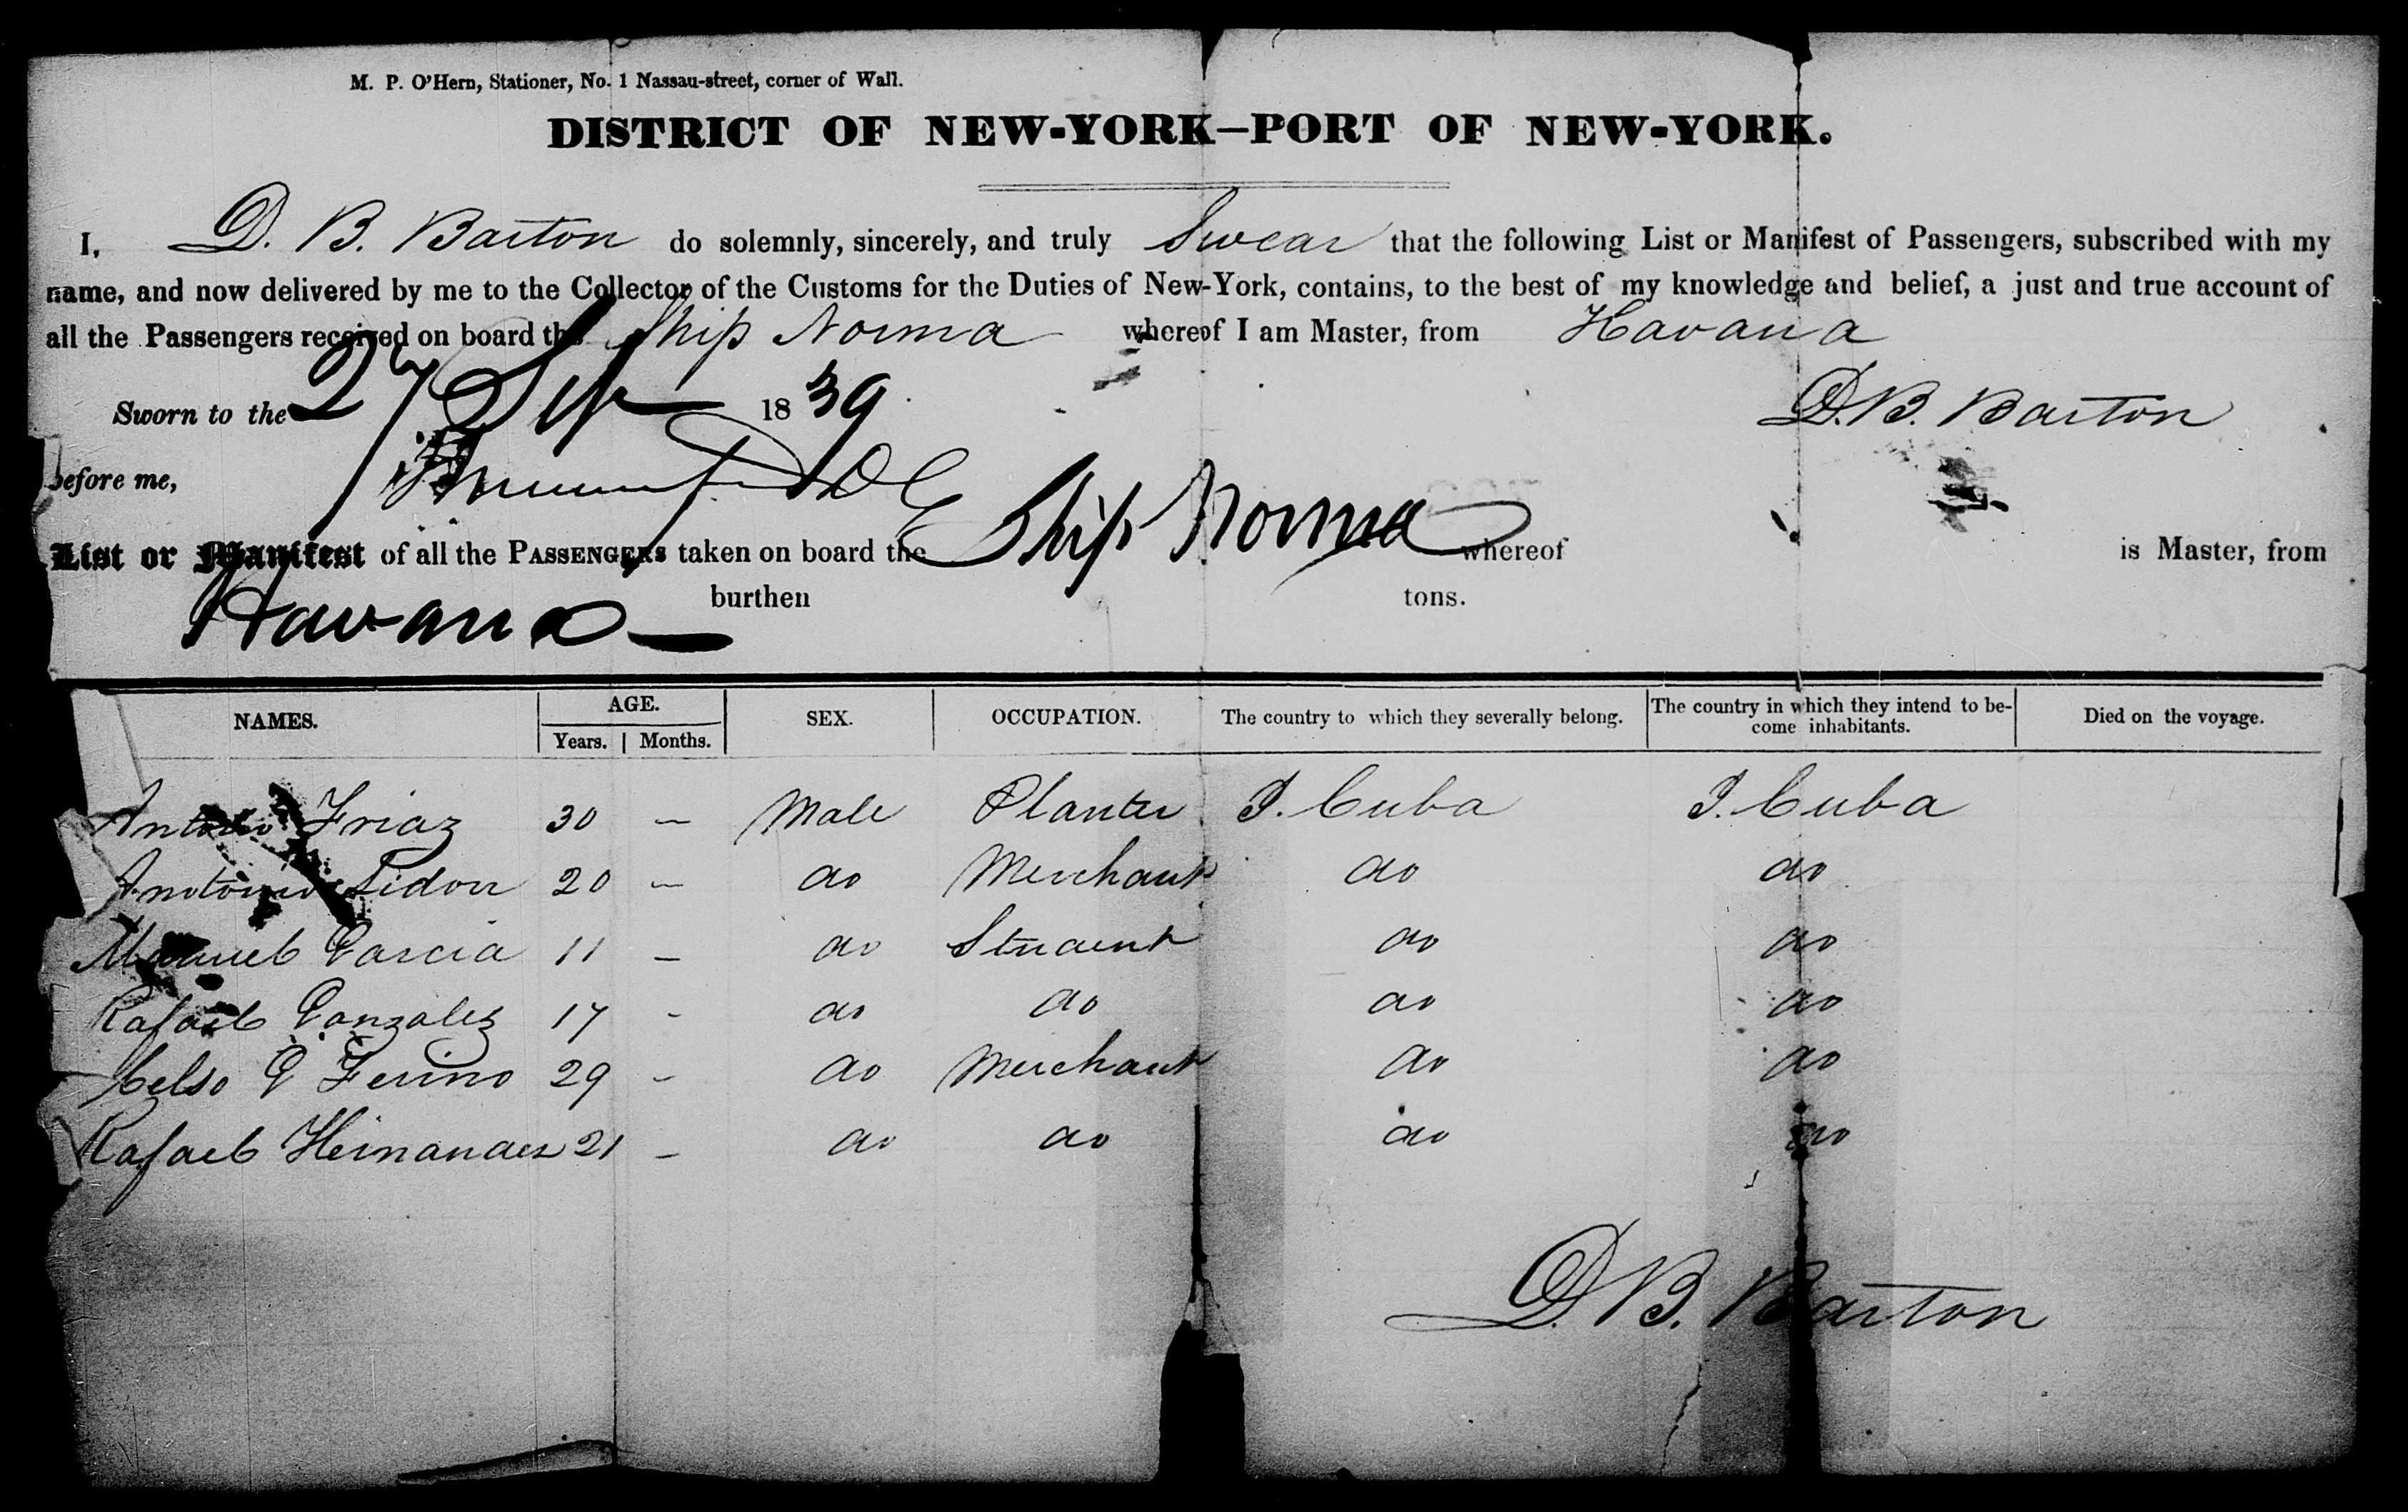 M. P. O'Hern, Stationer, No. 1 Nassau-street, corner of Wall.
DISTRICT OF NEW-YORK—PORT OF NEW-YORK.
I, D. B. Barton do solemnly, sincerely, and truly Swear that the following List or Manifest of Passengers, subscribed with my
name, and now delivered by me to the Collector of the Customs for the Duties of New-York, contains, to the best of my knowledge and belief, a just and true account of
all the Passengers received on board the Ship Norma whereof I am Master, from Havana
Sworn to the 27 Sep 1839 D. B. Barton
before me,
List or Manifest of all the PASSENGERS taken on board the Ship Norma whereof is Master, from
Havana burthen tons.
NAMES. AGE. SEX. OCCUPATION. The country to which they severally belong. The country in which they intend to be-
come inhabitants. Died on the voyage.
Years. Months.
Antonio Friaz 30 — Male Planter I. Cuba I. Cuba
Anotonio Lidon 20 — do Merchant do do
Manuel Garcia 11 — do Student do do
Rafael Gonzalez 17 - do do do do
Celso G Ferino 29 - do Merchant do do
Rafael Hernandez 21 - do do do do
D. B. Barton